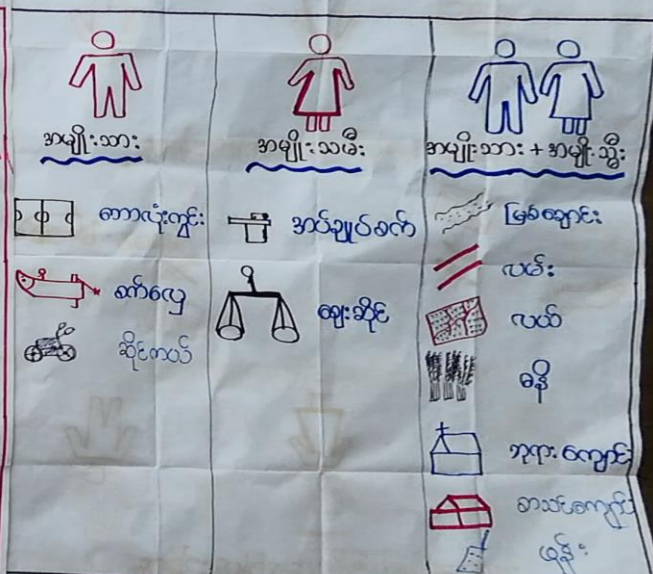 အမျိုးသား
ဘောလုံးကွင်း
စက်လှေ
ဆိုင်ကယ်
အမျိုးသမီး
အပ်ချုပ်စက်
ဈေးဆိုင်
အမျိုးသား + အမျိုးသ္မီး
မြစ်ချောင်း
လမ်း
လယ်
ဓနိ
ဘုရားကျောင်း
စာသင်ကျောင်း
ဖုန်း